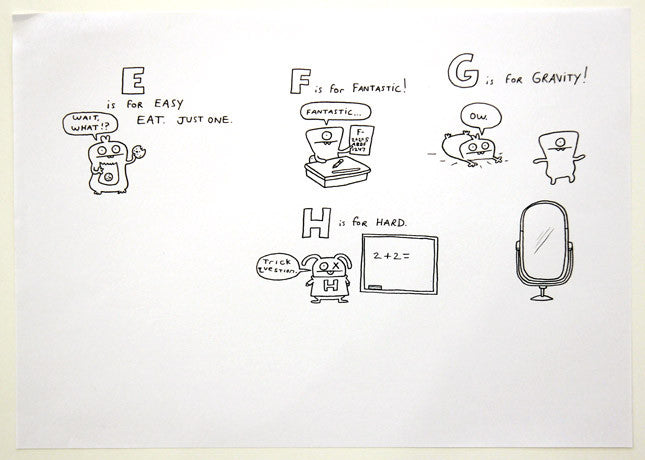 E
is for EASY
EAT. JUST ONE.
WAIT,
WHAT!?
F is for FANTASTIC!
FANTASTIC...
F-
G is for GRAVITY!
OW.
H is for HARD.
TRICK
QUESTION.
H
2+2=